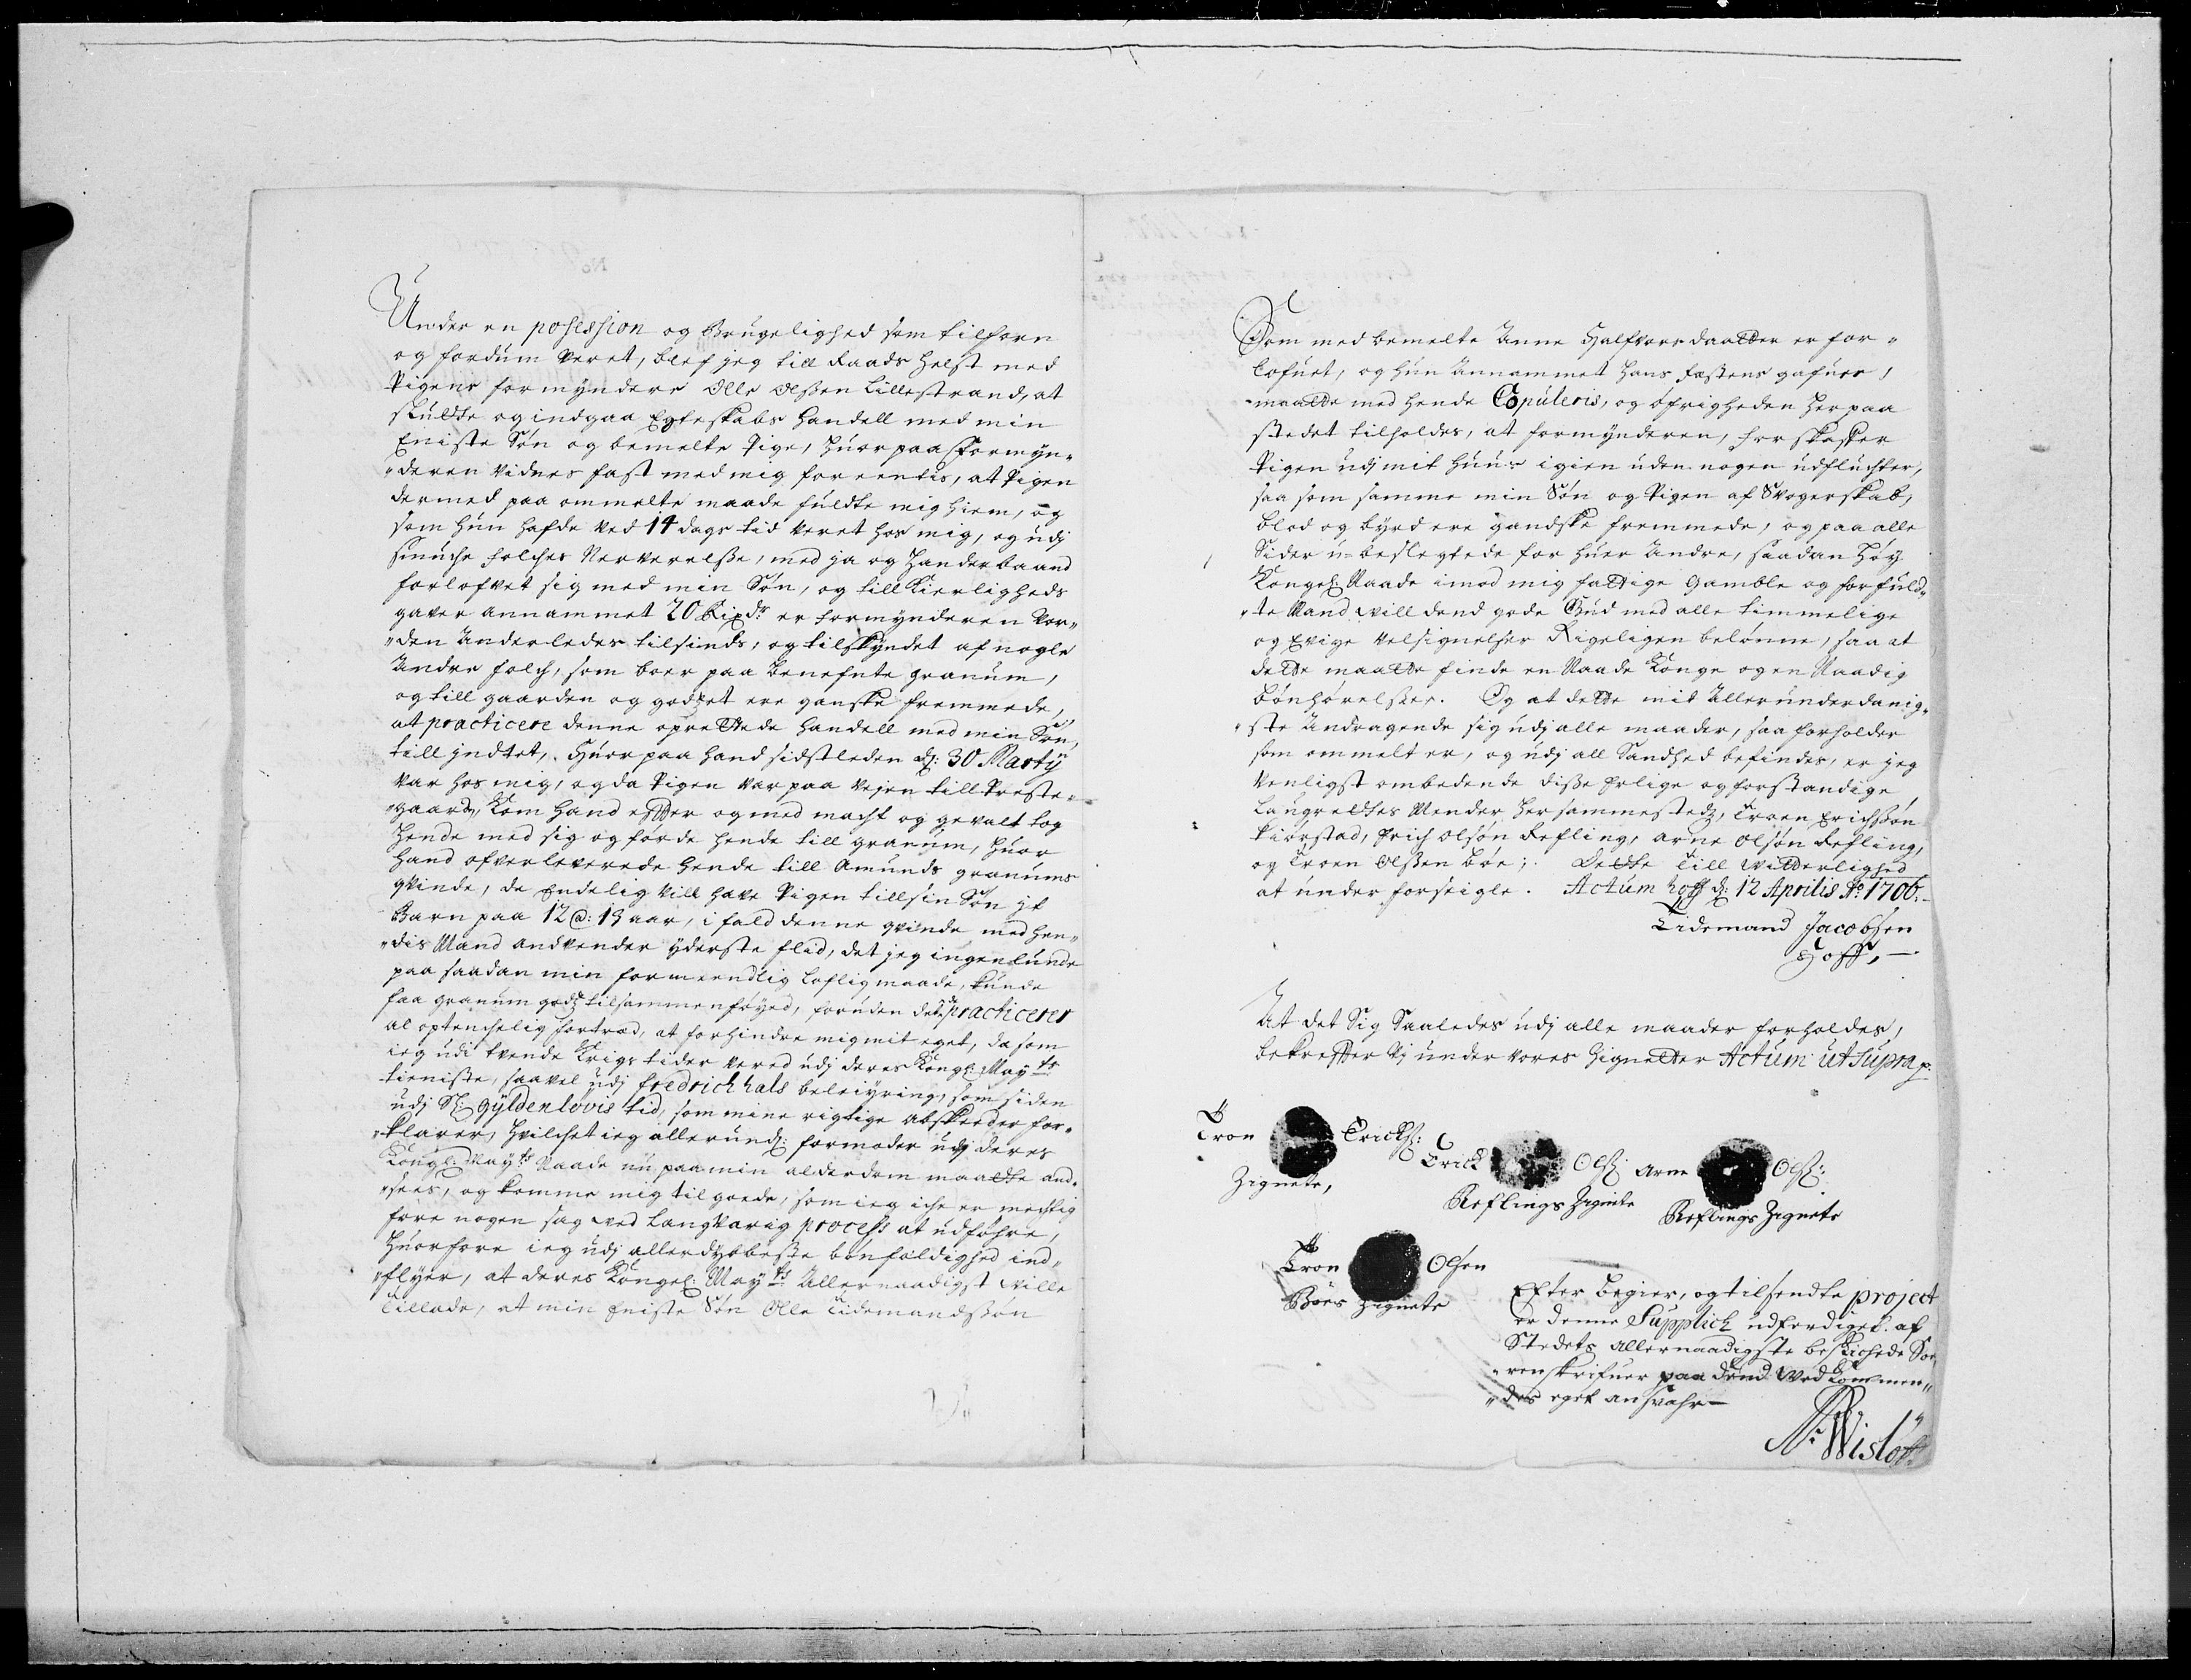 Under en posession og Brugelighed som tilforn
og fordum veret, blef jeg till Raads helst med
Pigens formyndere Olle Olßen Lillestrand, at
skulde og indgaa Egteskabs handell med min
Eniste Søn og bemelte Pige, huor paa formyn„
„deren vidnes fast med mig foreentis, at Pigen
dermed paa ommelte maade fuldte mig hiem, og
som hun hafde ved 14 dags tid veret hos mig, og udj
smuche folches Nerverelße, med ja og Hander baand
forlofvet sig med min Søn, og till Kierligheds
gaver annammet 20 Rixdr er formynderen vor„
„den Anderledes tilsinds, og tilskyndet af nogle
Andre folch, som boer paa benefnte Granum,
og till gaarden og godzet ere ganske fremmede,
at practicere denne oprettede handell med min Søn,
till jndtet, Huor paa hand sidstleden d: 30 Marty
var hos mig, og da Pigen var paa vejen till Preste„
„gaard, Kom hand efter og med macht og gevalt tog
hende med sig og førde hende till granum, huor
hand ofverleverede hende till Amunds granums
qvinde, de Endelig vill have Pigen till sin Søn it
Barn paa 12 @: 13 aar, i fald denne qvinde med hen„
„dis Mand andvender yderste flid, det jeg ingenlunde
paa saadan min formeendlig loflig maade, kunde
faa granum godz tilsammenføyed, foruden det practicerer
al optenchelig fortræd, at forhindre mig mit eget, da som
ieg udi tvende Krigs tider vered udj deres Kongl: Mayts
tieniste, saavel udj fredrichhals beleiyring, som siden
udj Sl: Gyldenløvis tid, som mine rigtige abskeeder for„
„klarer, hvilchet ieg allerund: formoder udj deres
Kongl: Mayts Naade nu paa min alderdom maatte and„
„sees, og komme mig til goede, som ieg iche er mechtig
føre nogen sag ved langvarig process at udføhre,
Huorfore ieg udj allerdybbeste bønfaldighed ind„
„flyer, at deres Kongel: Mayts Allernaadigst ville
Tillade, at min Eniste Søn Olle Tidemandssøn
Som med bemelte Anne Halfvors daatter er for„
lofuet, og hun Annammet hans fæstens gafuer,
maatte med hende Copuleris, og øfrigheden her paa
stedet tilholdes, at formynderen, forskaffer
Pigen udj mit huus igien uden nogen udfluchter,
saa som samme min Søn og Pigen af Svogerskab,
blod og byrd ere gandske fremmede, og paa alle
Sider u-beslegtede for huer Andre, saadan Høy
Kongel: Naade imod mig fattige Gamble og forfuld„
„te Mand, will dend gode Gud med alle timmelige
og Evige velsignelser Rigeligen belønne, saa at
dette maatte finde en Naade Konge og en Naadig
bønhørelßer. Og at dette mit Allerunderdanig„
„ste Andragende sig udj alle maader, saa forholder
som ommelt er, og udj all Sandhed befindes, er jeg
Venligst ombedende diße Erlige og forstandige
Laugrettes Mender her sammestedz, Troen Erichßøn
Kiørstad, Erich Olsøn Refling, Arne Olsøn Refling,
og Troen Olßen Bøe; Dette Till Witterlighed
at under forseigle. Actum Hoff d: 12 Aprilis Ao 1706.
Tidemand Jacobsen
Hoff,
At det Sig Saaledes udj alle maader forholdes,
bekrefter Vj under vores Signetter Actum ut Supra
Tron Ericks:
Zignete,
Erick Ols: Arne Ols:
Reflings Zignete Reflings Zignete
Tron Olsen
Böes Zignete
Efter begier, og tilsendte project
er denne Supplich udferdiget af
Stedets allernaadigste beskichede Soe„
„renskrifuer paa dend Vedkommen„
„des eget ansvahr
N: Wisløff